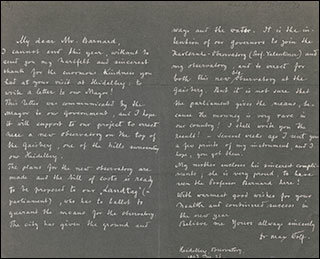 My dear Mr. Barnard,
I cannot end this year, without to
send you my heartfelt and sincerest
thanks for the enormous kindness you
had at your visit at Heidelberg, to
write a letter to our Mayor!
This letter was communicated by the
Mayor to our Government, and I hope
it will support to our project to erect
here a new observatory on the top of
the Gaisberg, one of the hills surrounding
our Heidelberg.
The plans for the new observatory are
made and the bill of costs is ready
to be proposed to our "Landtag" (=
parliament), who has to ballot to
guarant the means for the observatory.
The city has given the ground and
ways and the water. It is the in-
tention of our governor to join the
Karlsruhe-Observatory (Prof. Valentiner) and
my observatory and to erect for
both this new observatory at the
Gaisberg. But it is not sure that
the parliament gives the means, be-
cause the money is very rare in
our country! I shall write you the
result! - Several weeks ago I sent you
a few prints of my instrument, and I
hope, you got them.
My mother encloses his sincered compli-
ments; she is very proud, to have
seen the Professor Barnard here!
With warmest good wishes for your
health and continued success in
the new year
Believe me Yours allways sincerely
Max Wolf.
Heidelberg Observatory